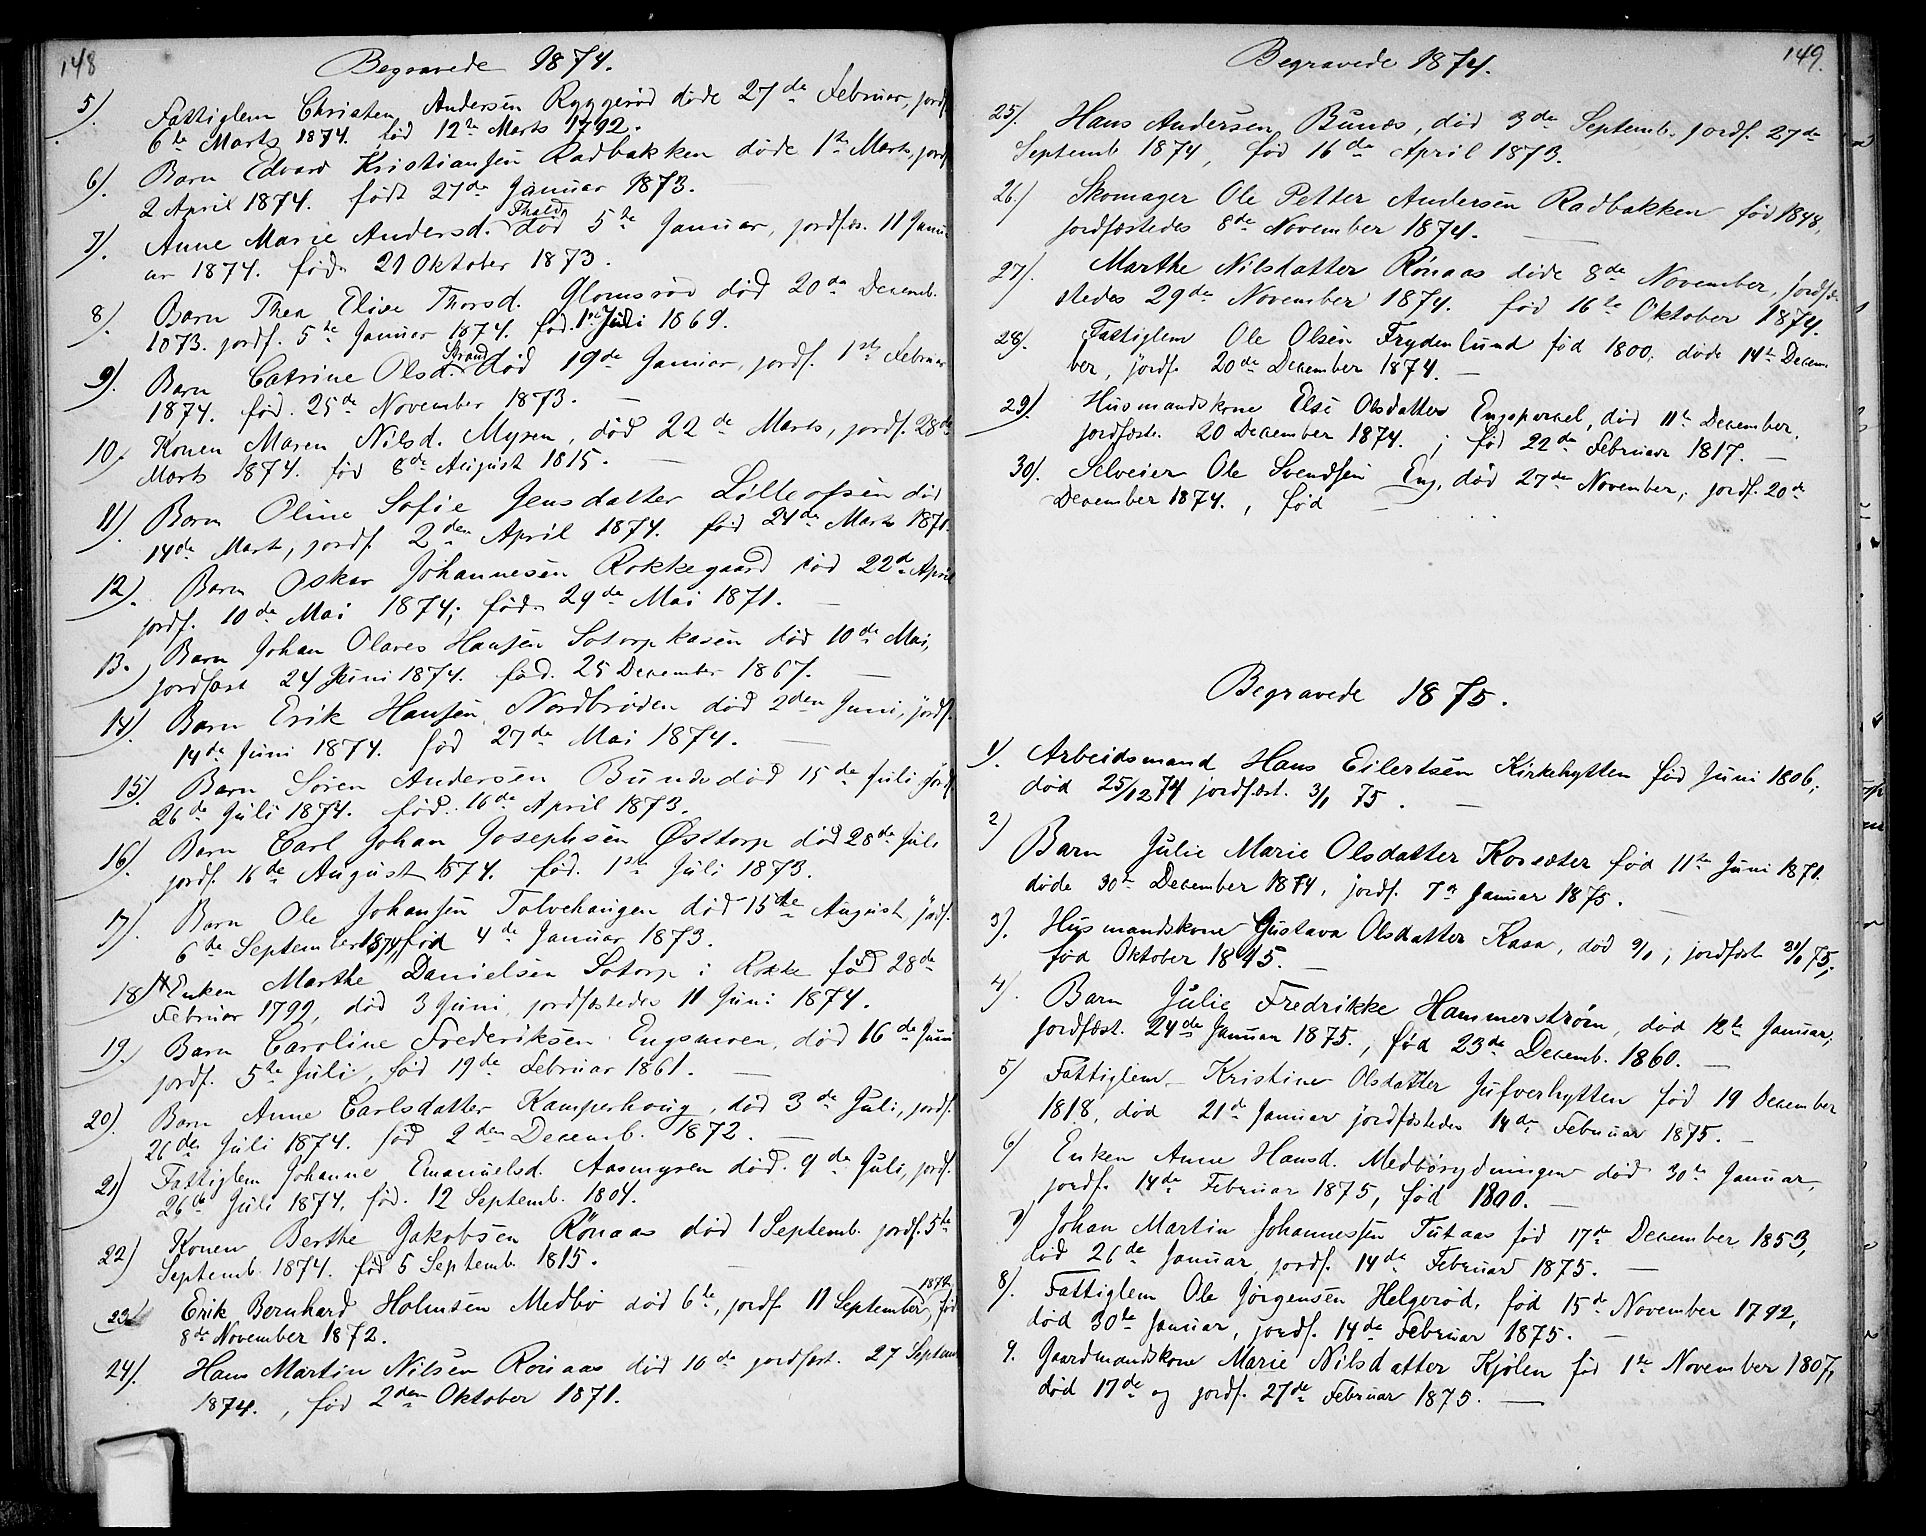 148
Begravede 1874.
5). Fattiglem Christen Andersen Ryggerød døde 27de Februar, jordf
6te Marts 1874. fød 12te Marts 1792.
6). Barn Edvard Kristiansen Radbakken døde 1ste Marts, jordf
2 April 1874. født 27de Januar 1873.
7). Anne Marie Andersd. Thald død 5te Januar, jordfæs. 11 Janu-
ar 1874. fød. 21 Oktober 1873.
8) Barn Thea Elise Thorsd. Glomsrød død 20de Decemb.
1873. jordf. 5te Januar 1874. fød. 1ste Juli 1869.
9). Barn Catrine Olsd. Strand død 19de Januar, jordf. 1ste Februar
1874. fød. 25de November 1873. —
10. Konen Maren Nilsd. Mysen, død 22de Marts, jordf. 28de
Marts 1874. fød 8de August 1815. —
11). Barn Oline Sofie Jensdatter Lilleofsen død
14de Marts, jordf. 2den April 1874. fød 24de Marts 1871.
12). Barn Oskar Johannesen Rokkegaard død 22de April
jordf. 10de Mai 1874; fød. 29de Mai 1871. —
13. Barn Johan Olares Hansen Sotorpkasen død 10de Mai,
jordfæst 24 Juni 1874. fød. 25 December 1867. —
14). Barn Erik Hansen Nordbrøden død 2den Juni, jordf.
14de Juni 1874. fød 27de Mai 1874. —
15). Barn Søren Andersen Bunæs død 15de Juli jordf
26de Juli 1874. fød. 16de April 1873.
16). Barn Carl Johan Josephsen Østtorp død 28de Juli
jordf. 16de August 1874. fød. 1ste Juli 1873.
17). Barn Ole Johansen Tolvehaugen død 15de August, jordf.
6te September 1874, fød 4de Januar 1873.
18. Enken Marthe Danielsen Sotorp i Rokke fød 28de
Februar 1799, død 3 Juni, jordfæstedes 11 Juni 1874.
19. Barn Caroline Frederiksen Engsmoen, død 16de Juni
jordf. 5te Juli, fød 19de Februar 1861. —
20). Barn Anne Carlsdatter Kamperhoug, død 3de Juli, jordf.
26de Juli 1874. fød 2den Decemb. 1872. —
21) Fattiglem Johanne Emanuelsd. Aasmysen død. 9de Juli, jordf.
26de Juli 1874, fød. 12 Septemb. 1804.
22) Konen Berthe Jakobsen Rönaas død 1 Septemb. jordf. 5te
Septemb. 1874. fød 5 Septemb. 1815.
23. Erik Bernhard Holmsen Medbö død 6te, jordf. 11 September 1874, fød
8de November 1872.
24). Hans Martin Nilsen Rönaas død 10de jordfæst. 27 Septem
1874. , fød 2den Oktober 1871.
149.
Begravede 1874.
25). Hans Andersen Bunæs, død 3de Septemb. jordf. 27de
Septemb 1874, fød 16de April 1873.
26.) Skomager Ole Petter Andersen Radbakken fød 1848,
jordfæstedes 8de November 1874. —
27). Marthe Nilsdatter Rönaas døde 8de November, jordfæ-
stedes 29de November 1874. fød 16de Oktober 1874.
28). Fattiglem Ole Olsen Frydenlund fød 1800, døde 14de Decem-
ber, jordf. 20de December 1874. —
29). Husmandskone Else Olsdatter Engsparcel, død 11te December,
jordfæste. 20 December 1874. ; fød 22de Februar 1817. —
30). Selveier Ole Svendsen Eng, død 27de November, jordf. 20de
December 1874. , fød —
Begravede 1875.
1). Arbeidsmand Hans Eilertsen Kirkehytten fød Juni 1806,
død 25/12 74 jordfæst. 3/1 75. —
2) Barn Julie Marie Olsdatter Korsæter fød 11te Juni 1871.
døde 30te December 1874, jordf. 7de Januar 1875. —
3). Husmandskone Gustava Olsdatter Kasa, død 9/1, jordfæst 31/1 75;
fød Oktober 1845. —
4). Barn Julie Fredrikke Hammerstrøm, død 12te Januar,
jordfæst. 24de Januar 1875., fød 23de Decemb. 1860. —
5) Fattiglem Kristine Olsdatter Jufverhytten fød 19 December
1818, død 21de Januar jordfæstedes 14de Februar 1875. —
6) Enken Anne Hansd. Medbörydningen død 30te Januar,
jordf. 14de Februar 1875, fød 1800. —
7) Johan Martin Johannessen Tutaas fød 17de December 1853,
død 26de Januar, jordf. 14de Februar 1875. —
8). Fattiglem Ole Jørgensen Helgerød, fød 15de November 1792,
død 30te Januar, jordf. 14de Februar 1875. —
9. Gaardmandskone Marie Nilsdatter Kjølen fød 1ste November 1807,
død 17de og jordf. 27de Februar 1875. —